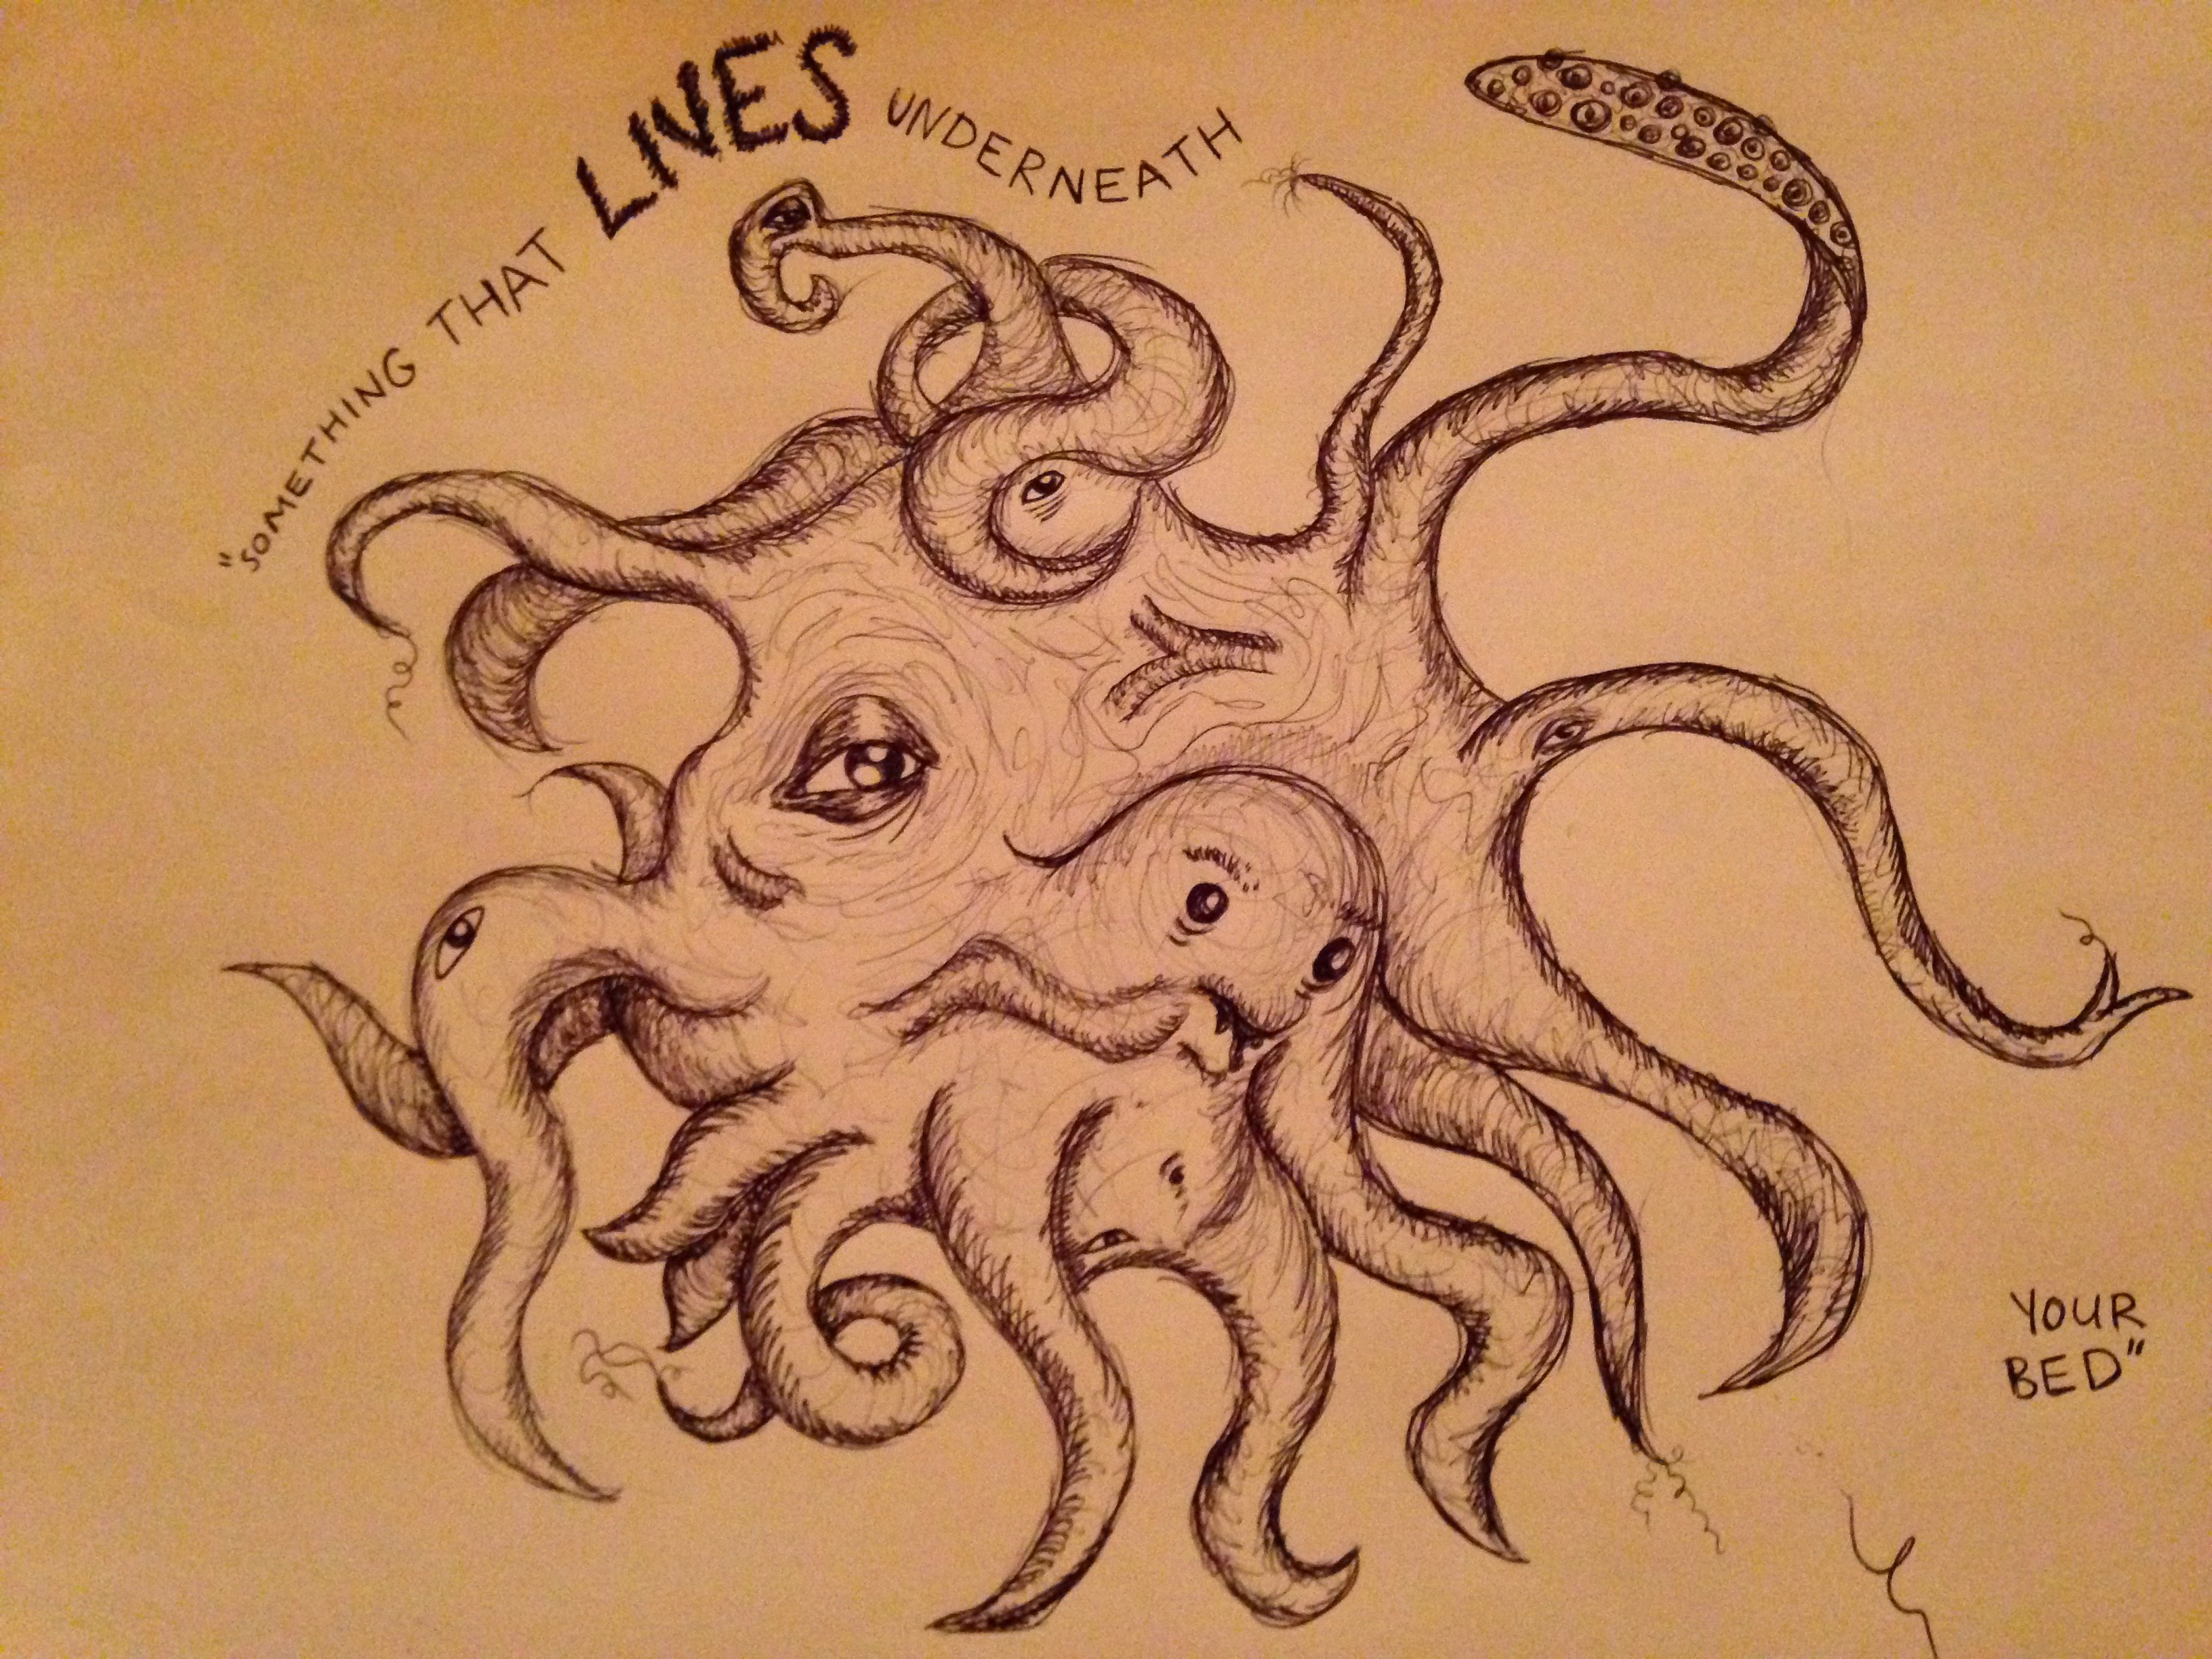 "SOMETHING THAT LIVES UNDERNEATH
YOUR
BED"